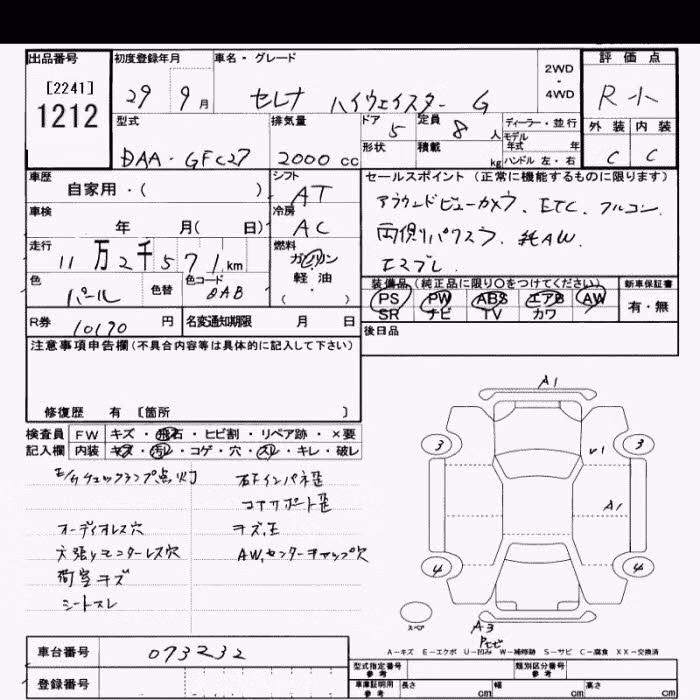 出品番号
[2241]
1212
初度登録年月
29 9月
車名・グレード
セレナ ハイウェイスター G
2WD
・
4WD
評価点
R 小
外装 内装
C C
型式
DAA-GFC27
排気量
2000 cc
ドア 5
形状
定員 8 人
積載 kg
ディーラー・並行
モデル
年式 年
ハンドル 左・右
車歴
自家用・( )
シフト
AT
車検
年 月( 日)
冷房
AC
走行
11万2千571km
燃料
ガソリン
軽油
( )
色
パール
色替
色コード
QAB
セールスポイント(正常に機能するものに限ります)
アラウンドビューカメラ、ETC、フルコン、
両側Rパワスラ、純AW、
エマブレ、
装備品(純正品に限り○をつけてください)
PS PW ABS エアB AW
SR ナビ TV カワ
新車保証書
有・無
R券
10170 円
名変通知期限 月 日
後日品
注意事項申告欄(不具合内容等は具体的に記入して下さい)
修復歴 有 〔箇所 〕
検査員
記入欄
FW キズ・飛石・ヒビ割・リペア跡・×要
内装 キズ・汚レ・コゲ・穴・スレ・キレ・破レ
E/Gチェックランプ点灯
オーディオレス穴
天張りモニターレス穴
荷室キズ
シートスレ
右Fインパネ歪
コアサポート歪
キズ、E
AW、センターキャップ欠
A1
3
3
v1
A1
4
4
スペア
A3
A-キズ E-エクボ U-凹み W-補修跡 S-サビ C-腐食 XX-交換済
車台番号
073232
登録番号
型式指定番号
参考
類別区分番号
参考
車庫証明用
参考
長さ cm 幅 cm 高さ cm